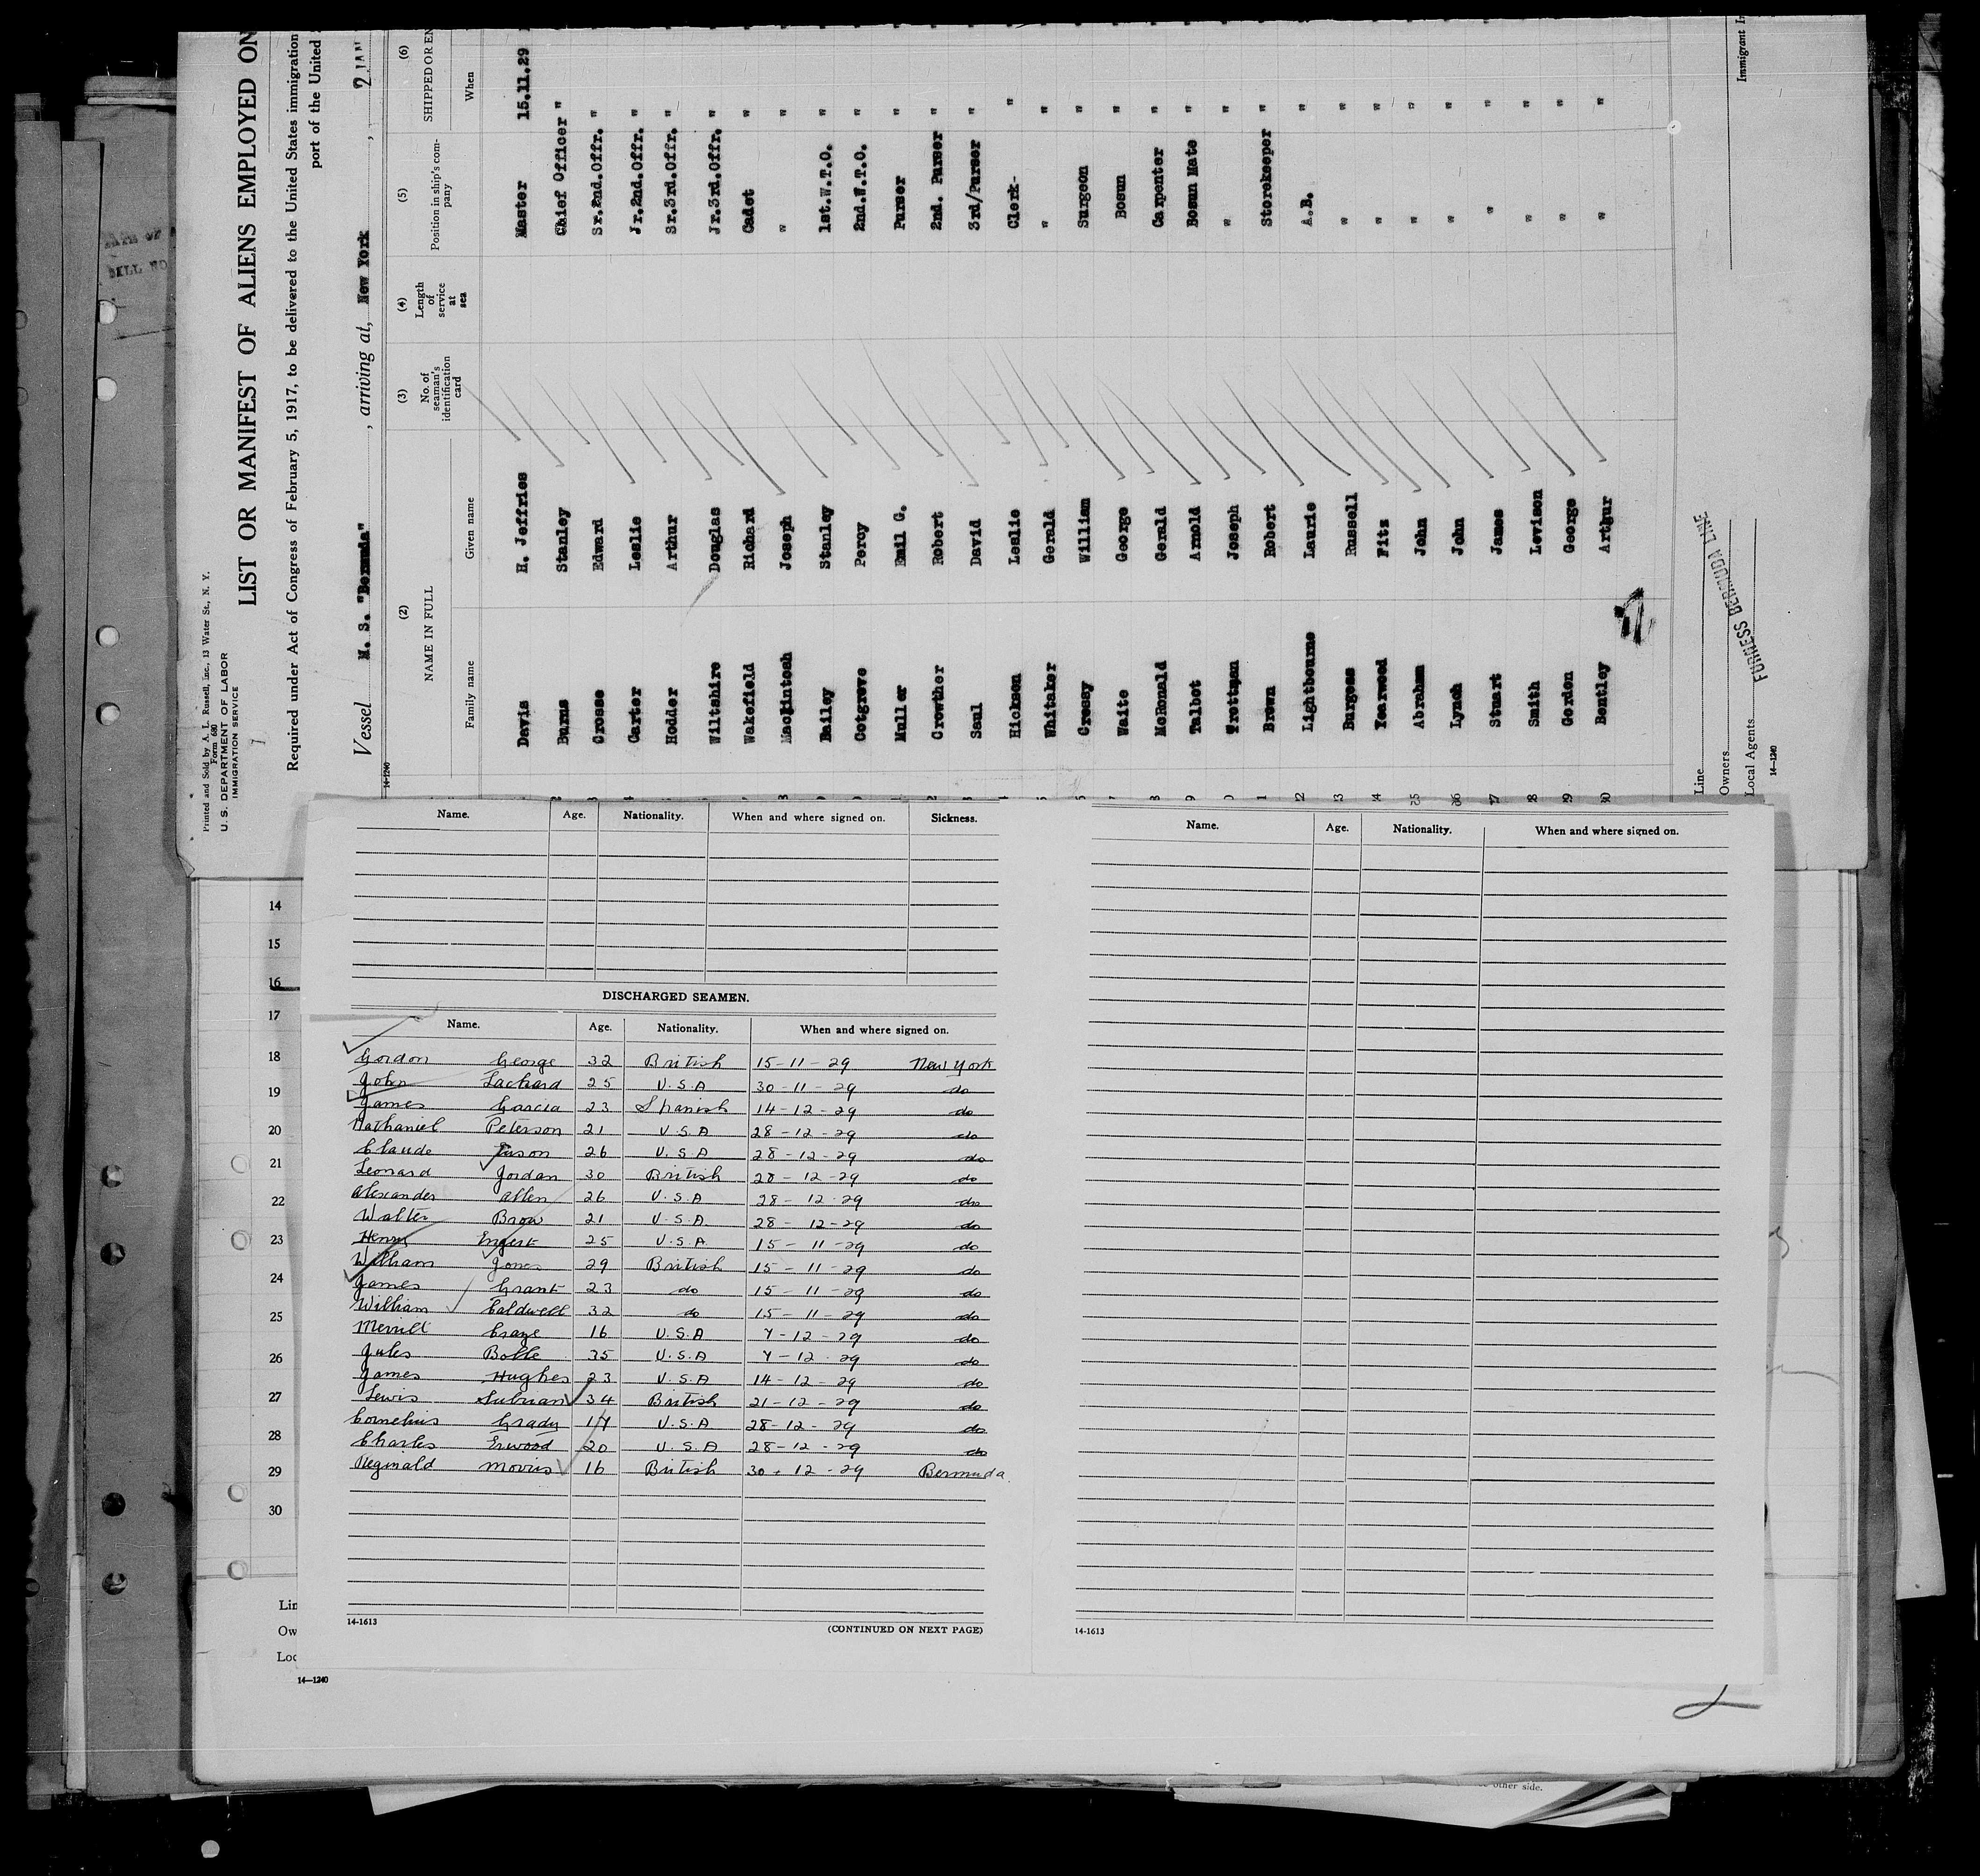 Printed and Sold by A. L. Russell, Inc., 13 Water St., N. Y.
Form 680
U. S. DEPARTMENT OF LABOR
IMMIGRATION SERVICE
LIST OR MANIFEST OF ALIENS EMPLOYED ON
Required under Act of Congress of February 5, 1917, to be delivered to the United States immigration
port of the United
Vessel M. S. "Bermuda", arriving at, New York, 2 JAN
14-1240
(2) (3) (4) (5) (6)
NAME IN FULL No. of seaman's identification card Length of service at sea Position in ship's company SHIPPED OR EN
Family name Given name When
Davis H. Jeffries Master 15.11.29
2 Burns Stanley Chief Officer "
3 Crosse Edward Sr.2nd.Offr. "
4 Carter Leslie Jr.2nd.Offr. "
Hodder Arthur Sr.3rd.Offr. "
Wiltshire Douglas Jr.3rd.Offr. "
7 Wakefield Richard Cadet "
8 Mackintosh Joseph " "
9 Bailey Stanley 1st.W.T.O. "
0 Cotgreve Percy 2nd.W.T.O. "
1 Muller Emil G. Purser "
2 Crowther Robert 2nd. Purser "
3 Saul David 3rd/Purser "
4 Hickson Leslie Clerk- "
5 Whitaker Gerald " "
6 Cressy William Surgeon "
7 Waite George Bosun "
8 McRonald Gerald Carpenter "
9 Talbot Arnold Bosun Mate "
0 Trottman Joseph " "
1 Brown Robert Storekeeper "
22 Lightbourne Laurie A.B. "
23 Burgess Russell " "
24 Yearwood Fitz " "
25 Abraham John " "
26 Lynch John " "
27 Stuart James " "
28 Smith Levison " "
29 Gordon George " "
30 Bentley Arthur " "
Line
Owners
Local Agents
FURNESS BERMUDA LINE
14-1240
Immigrant In
BILL NO
Name. Age. Nationality. When and where signed on. Sickness.
DISCHARGED SEAMEN.
Name. Age. Nationality. When and where signed on.
Gordon George 32 British 15-11-29 New York
John Lachard 25 U.S.A 30-11-29 do
James Garcia 23 Spanish 14-12-29 do
Nathaniel Peterson 21 U.S.A 28-12-29 do
Claude Juson 26 U.S.A 28-12-29 do
Leonard Jordan 30 British 28-12-29 do
Alexander Allen 26 U.S.A 28-12-29 do
Walter Brow 21 U.S.A. 28-12-29 do
Henry 25 U.S.A. 15-11-29 do
William Jones 29 British 15-11-29 do
James Grant 23 do 15-11-29 do
William Caldwell 32 do 15-11-29 do
Merrill Craze 16 U.S.A 7-12-29 do
Jules Bolle 35 U.S.A 7-12-29 do
James Hughes 23 U.S.A 14-12-29 do
Lewis Aubrian 34 British 21-12-29 do
Cornelius Grady 17 U.S.A 28-12-29 do
Charles Erwood 20 U.S.A 28-12-29 do
Reginald Morris 16 British 30-12-29 Bermuda
14-1613
(CONTINUED ON NEXT PAGE)
Name. Age. Nationality. When and where signed on.
14-1613
14
15
16
17
18
19
20
21
22
23
24
25
26
27
28
29
30
Lin
Ow
Loc
14-1240
other side.